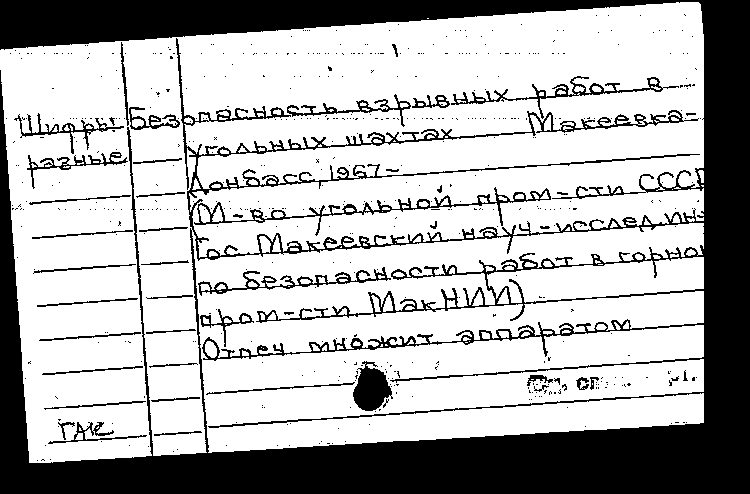 Шифры Безопасность взрывных работ в
разные угольных шахтах Макеевка-
Донбасс, 1967-
(М-во угольной пром-сти СССР
Гос. Макеевский науч-исслед. ин-
по безопасности работ в горно
пром-сти МакНИИ)
Отпеч. множит. аппаратом
См. сл.
ГАК